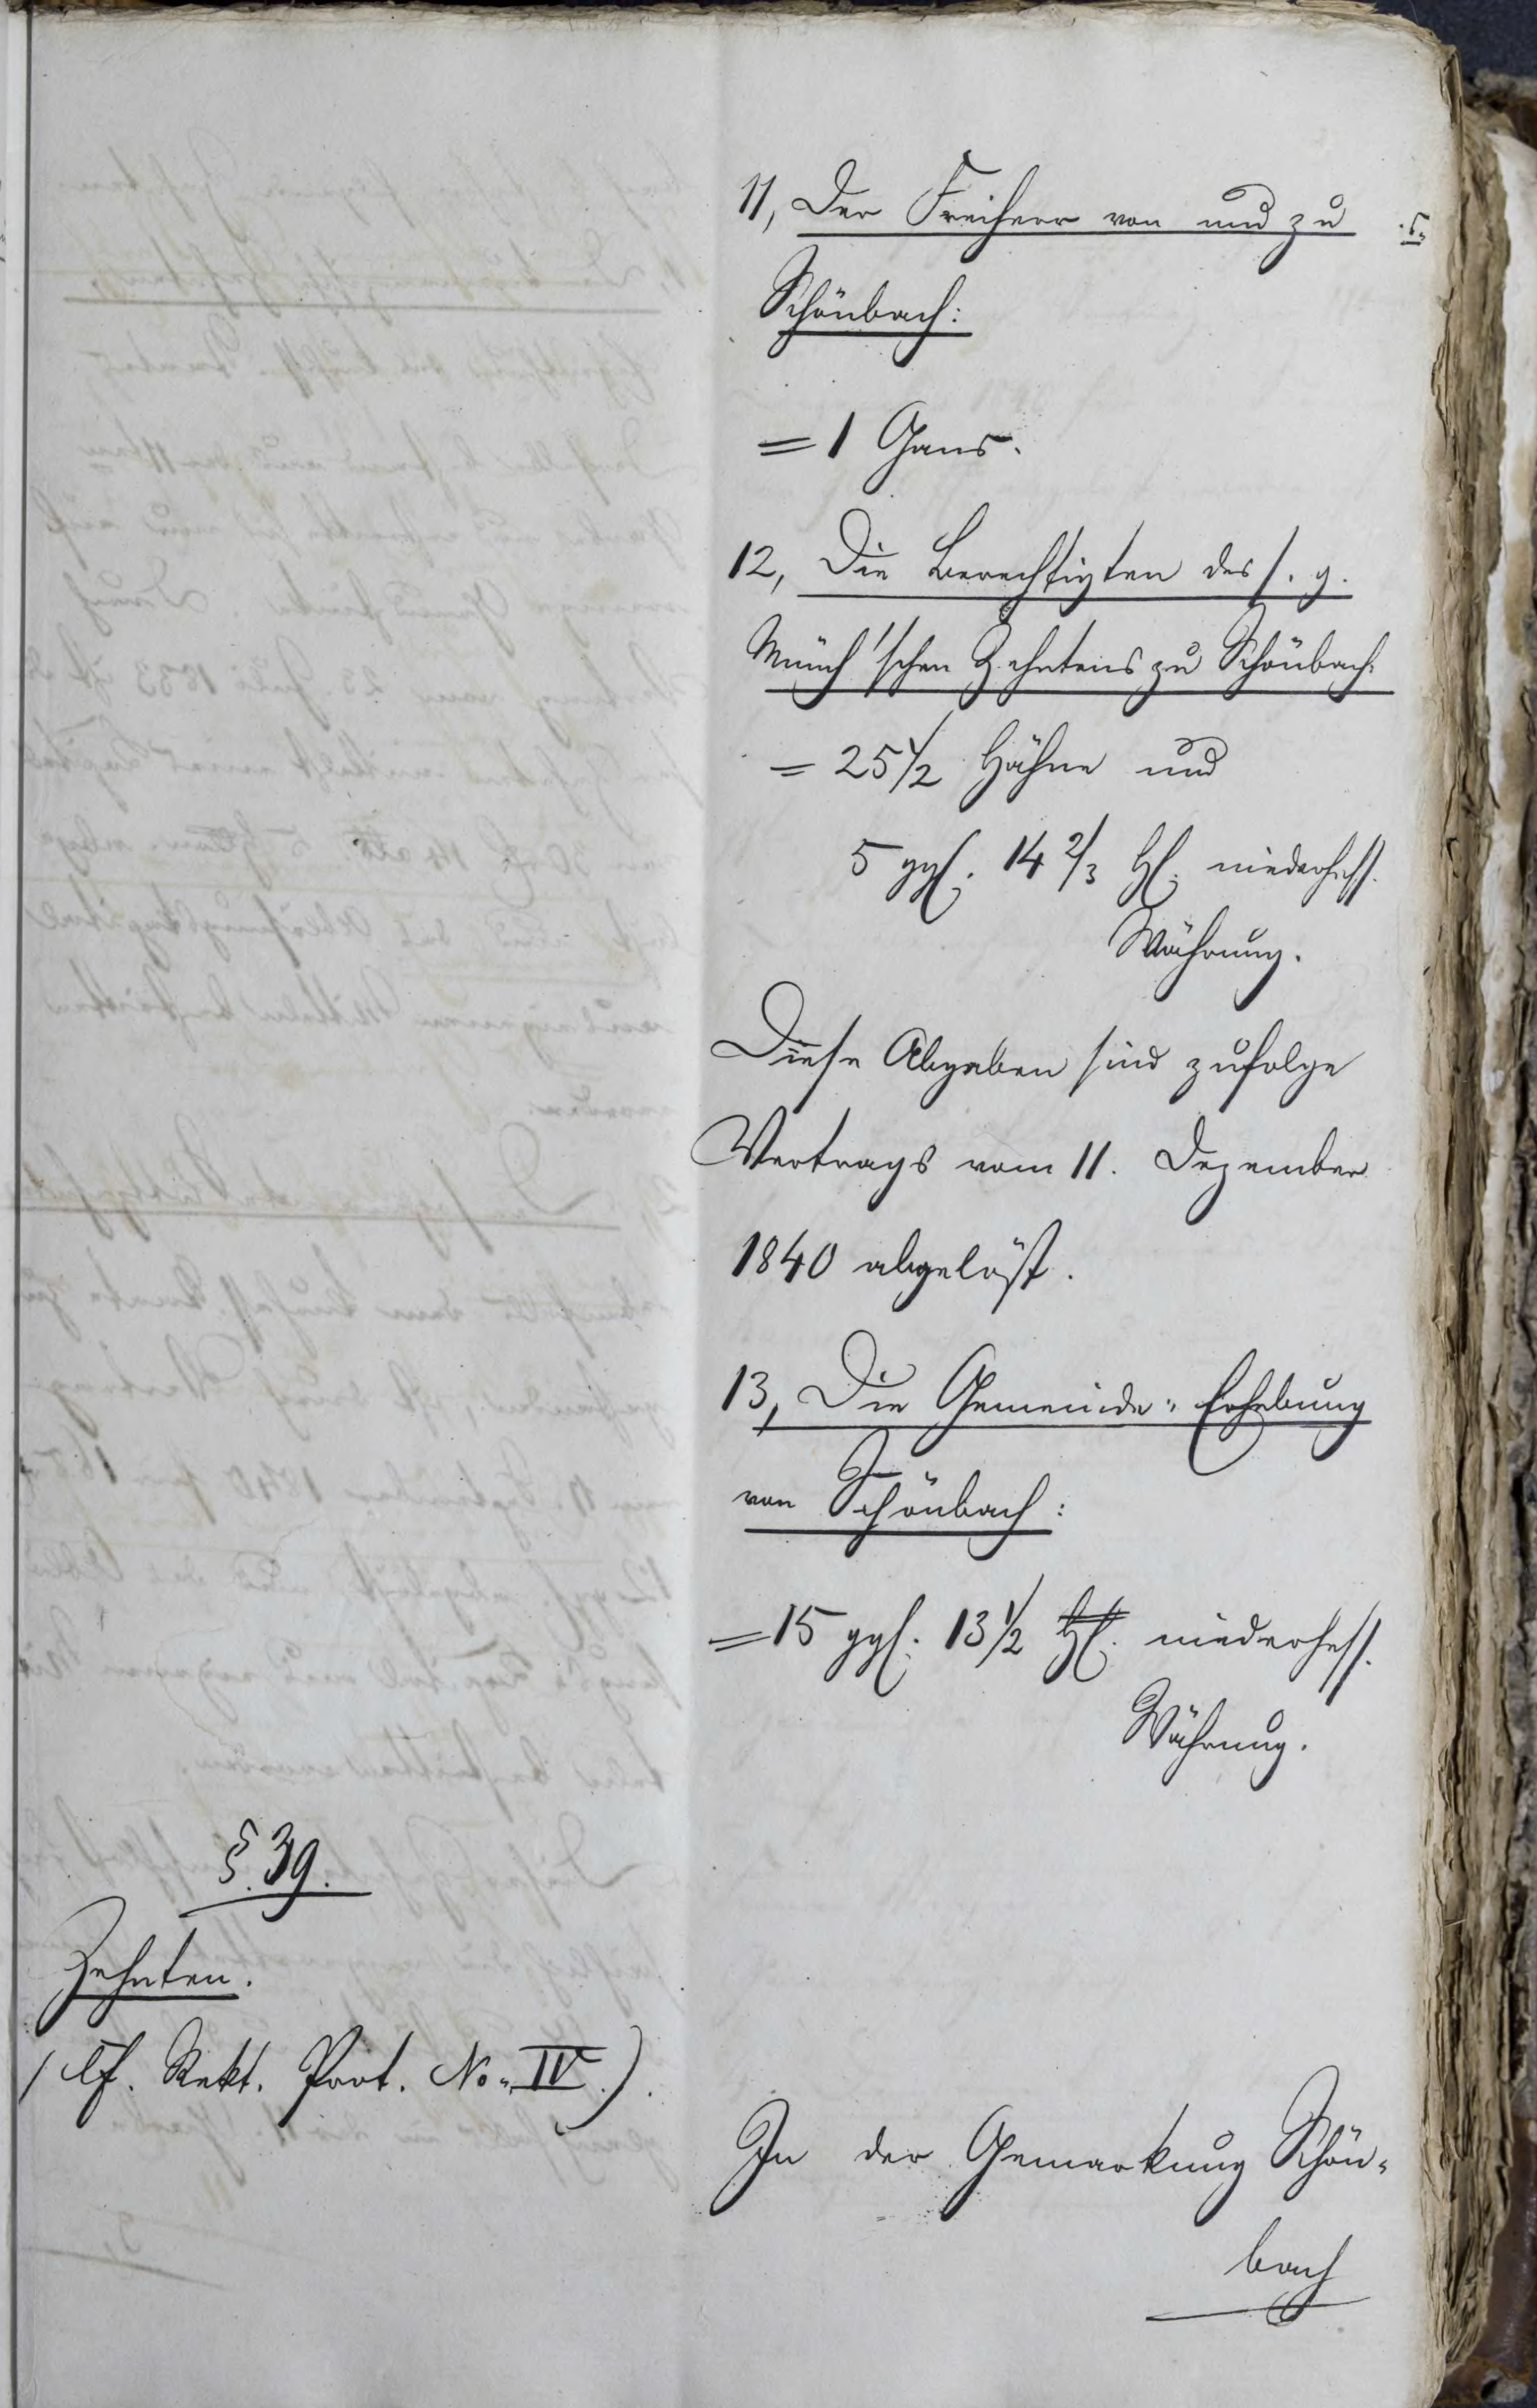 11, Der Freiherr von und zu
Schönbach:
= 1 Gans.
12, Die Berechtigten des s. g.
Münch'schen Zehntens zu Schönbach:
= 25 1/2 Hähne und
5 ggl. 14 2/3 Hl. niederhess.
Währung.
Diese Abgaben sind zufolge
Vertrags vom 11. Dezember
1840 abgelöst.
13, Die Gemeinde-Erhebung
von Schönbach:
= 15 ggl. 13 1/2 Hl. niederhess.
Währung.
§. 39.
Zehnten.
(cf. Rekt. Prot. No. IV.).
In der Gemarkung Schön-
bach